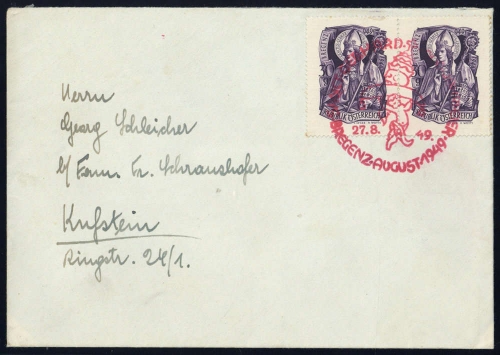 Herrn
Georg Schleicher
b/ Fam. Fr. Schraushofer
Kufstein
Ringstr. 24/1.
REPUBLIK ÖSTERREICH
REPUBLIK ÖSTERREICH
27.8. 49.
BREGENZ·AUGUST·1949